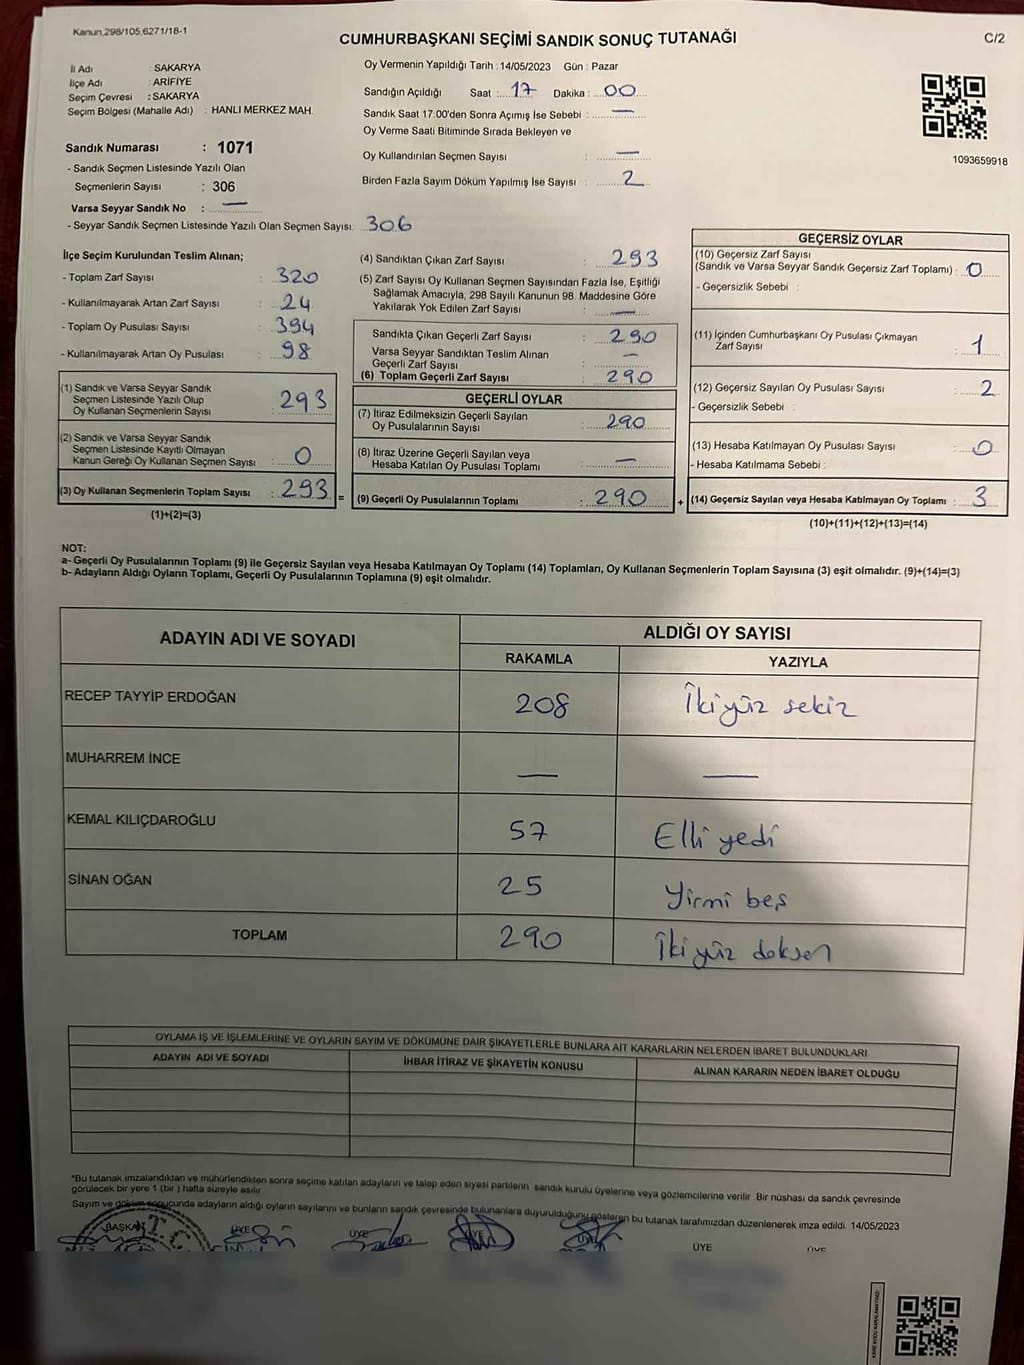 Kanun,298/105,6271/18-1
CUMHURBAŞKANI SEÇİMİ SANDIK SONUÇ TUTANAĞI
C/2
İl Adı : SAKARYA
İlçe Adı : ARİFİYE
Seçim Çevresi : SAKARYA
Seçim Bölgesi (Mahalle Adı) : HANLI MERKEZ MAH.
Oy Vermenin Yapıldığı Tarih :14/05/2023 Gün : Pazar
Sandığın Açıldığı Saat : 17 Dakika : 00
Sandık Saat 17:00'den Sonra Açımış İse Sebebi : —
Oy Verme Saati Bitiminde Sırada Bekleyen ve
Oy Kullandırılan Seçmen Sayısı : —
Birden Fazla Sayım Döküm Yapılmış İse Sayısı : 2
1093659918
Sandık Numarası : 1071
- Sandık Seçmen Listesinde Yazılı Olan
Seçmenlerin Sayısı : 306
Varsa Seyyar Sandık No : —
- Seyyar Sandık Seçmen Listesinde Yazılı Olan Seçmen Sayısı: 306
İlçe Seçim Kurulundan Teslim Alınan;
- Toplam Zarf Sayısı : 320
- Kullanılmayarak Artan Zarf Sayısı : 24
- Toplam Oy Pusulası Sayısı : 394
- Kullanılmayarak Artan Oy Pusulası : 98
(1) Sandık ve Varsa Seyyar Sandık
Seçmen Listesinde Yazılı Olup
Oy Kullanan Seçmenlerin Sayısı : 293
(2) Sandık ve Varsa Seyyar Sandık
Seçmen Listesinde Kayıtlı Olmayan
Kanun Gereği Oy Kullanan Seçmen Sayısı : 0
(3) Oy Kullanan Seçmenlerin Toplam Sayısı : 293 =
(1)+(2)=(3)
(4) Sandıktan Çıkan Zarf Sayısı : 293
(5) Zarf Sayısı Oy Kullanan Seçmen Sayısından Fazla İse, Eşitliği
Sağlamak Amacıyla, 298 Sayılı Kanunun 98. Maddesine Göre
Yakılarak Yok Edilen Zarf Sayısı : —
Sandıkta Çıkan Geçerli Zarf Sayısı : 290
Varsa Seyyar Sandıktan Teslim Alınan
Geçerli Zarf Sayısı : —
(6) Toplam Geçerli Zarf Sayısı : 290
GEÇERLİ OYLAR
(7) İtiraz Edilmeksizin Geçerli Sayılan
Oy Pusulalarının Sayısı : 290
(8) İtiraz Üzerine Geçerli Sayılan veya
Hesaba Katılan Oy Pusulası Toplamı : —
(9) Geçerli Oy Pusulalarının Toplamı : 290 +
GEÇERSİZ OYLAR
(10) Geçersiz Zarf Sayısı
(Sandık ve Varsa Seyyar Sandık Geçersiz Zarf Toplamı) : 0
- Geçersizlik Sebebi :
(11) İçinden Cumhurbaşkanı Oy Pusulası Çıkmayan
Zarf Sayısı : 1
(12) Geçersiz Sayılan Oy Pusulası Sayısı : 2
- Geçersizlik Sebebi :
(13) Hesaba Katılmayan Oy Pusulası Sayısı : 0
- Hesaba Katılmama Sebebi :
(14) Geçersiz Sayılan veya Hesaba Katılmayan Oy Toplamı : 3
(10)+(11)+(12)+(13)=(14)
NOT:
a- Geçerli Oy Pusulalarının Toplamı (9) ile Geçersiz Sayılan veya Hesaba Katılmayan Oy Toplamı (14) Toplamları, Oy Kullanan Seçmenlerin Toplam Sayısına (3) eşit olmalıdır. (9)+(14)=(3)
b- Adayların Aldığı Oyların Toplamı, Geçerli Oy Pusulalarının Toplamına (9) eşit olmalıdır.
ADAYIN ADI VE SOYADI
ALDIĞI OY SAYISI
RAKAMLA YAZIYLA
RECEP TAYYİP ERDOĞAN 208 İkiyüz sekiz
MUHARREM İNCE — —
KEMAL KILIÇDAROĞLU 57 Elli yedi
SİNAN OĞAN 25 Yirmi beş
TOPLAM 290 İkiyüz doksen
OYLAMA İŞ VE İŞLEMLERİNE VE OYLARIN SAYIM VE DÖKÜMÜNE DAİR ŞİKAYETLERLE BUNLARA AİT KARARLARIN NELERDEN İBARET BULUNDUKLARI
ADAYIN ADI VE SOYADI İHBAR İTİRAZ VE ŞİKAYETİN KONUSU ALINAN KARARIN NEDEN İBARET OLDUĞU
*Bu tutanak imzalandıktan ve mühürlendikten sonra seçime katılan adayların ve talep eden siyasi partilerin sandık kurulu üyelerine veya gözlemcilerine verilir. Bir nüshası da sandık çevresinde
görülecek bir yere 1 (bir) hafta süreyle asılır.
Sayım ve döküm sonucunda adayların aldığı oyların sayılarını ve bunların sandık çevresinde bulunanlara duyurulduğunu gösteren bu tutanak tarafımızdan düzenlenerek imza edildi. 14/05/2023
BAŞKAN ÜYE ÜYE ÜYE ÜYE ÜYE ÜYE
T.C.